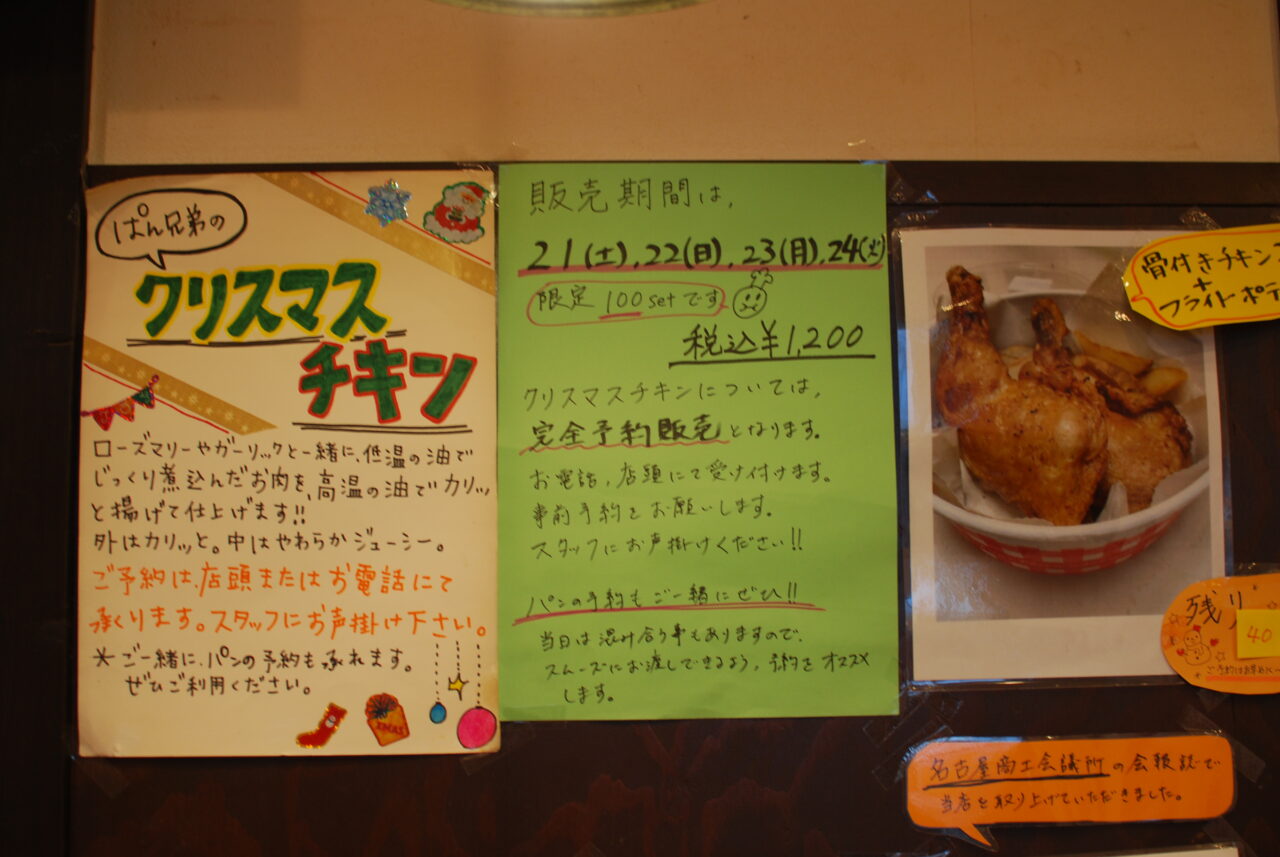 ぱん兄弟の
クリスマス
チキン
ローズマリーやガーリックと一緒に、低温の油で
じっくり煮込んだお肉を、高温の油でカリッ
と揚げて仕上げます!!
外はカリッと。中はやわらかジューシー。
ご予約は、店頭またはお電話にて
承ります。スタッフにお声掛け下さい。
＊ご一緒に、パンの予約も承れます。
ぜひご利用ください。
XMAS
販売期間は、
21(土),22(日),23(月),24(火)
限定 100setです
税込¥1,200
クリスマスチキンについては、
完全予約販売となります。
お電話、店頭にて受け付けます。
事前予約をお願いします。
スタッフにお声掛けください!!
パンの予約もご一緒にぜひ!!
当日は混み合う事もありますので、
スムーズにお渡しできるよう、予約をオススメ
します。
骨付きチキン
+
フライドポテ
残り
40
名古屋商工会議所の会報誌で
当店を取り上げていただきました。